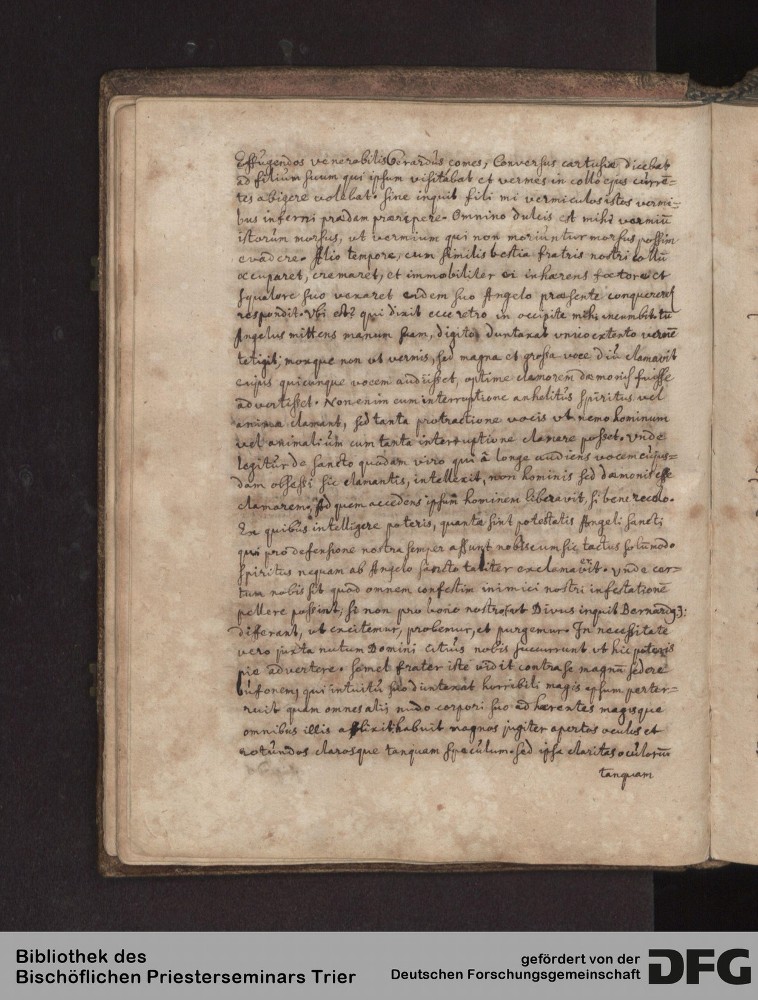 Effugendos venerabilis Gerardus comes, Conversus cartusiæ dicebat
ad filium suum qui ipsum visitabat et vermes in collo ejus curre=
tes abigere volebat. Sine inquit fili mi vermiculos istos vermi=
bus inferni prædam præripere. Omnino dulcis est mihi vermiū
istorum morsus, ut vermium qui non moriuntur morsus possim
evadere. Alio tempore, cum similis bestia fratris nostri collū
occuparet, cremaret, et immobiliter ei inhærens fœtore et
squalore suo vexaret eidem suo Angelo præsente
respondit. Ubi est? qui dixit ecce retro in occipite mihi incumbit tū
Angelus mittens manum suam, digito duntaxat unico extento vermē
tetigit; moxque non ut vermis, sed magna et grossa voce diu clamavit
cujus quicunque vocem audiisset, optime clamorem dæmonis fuisse
advertisset. Non enim cum interruptione anhelitus spiritus vel
animæ clamant, sed tanta protractione vocis ut nemo hominum
vel animalium cum tanta interruptione clamare posset. Unde
legitur de sancto quodam viro qui â longe audiens vocem cujus=
dam obsessi sic clamantis, intellexit, non hominis sed dæmonis esse
clamorem, Ad quem accedens ipsum hominem liberavit, si bene recolo.
En quibus intelligere poteris, quantæ sint potestatis Angeli sancti
qui pro defensione nostra semper assunt nobiscum sic tactus solumodo
spiritus nequam ab Angelo sancto taliter exclamavit. Unde cer=
tum nobis sit quod omnem confestim inimici nostri infestationē
pellere possint, se non pro bono nostro ut Divus inquit Bernardus:
differant, ut excitemur, probemur, et purgemur. In necessitate
vero juxta nutum Domini citius nobis succurrunt ut hic poteris
pie advertere. Semel frater iste vidit contra se magnū sedere
bufonem, qui intuitu suo duntaxat horribili magis ipsum perter=
ruit quam omnes alij nudo corpori suo adhærentes magisque
omnibus illis afflixit habuit magnos jugiter apertos oculos et
rotundos clarosque tanquam speculum. sed ipsa claritas oculorum
tanquam
Bibliothek des
Bischöflichen Priesterseminars Trier
gefördert von der
Deutschen Forschungsgemeinschaft
DFG